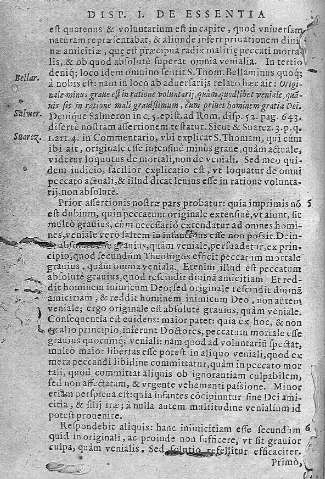 DISP. I. DE ESSENTIA
est quatenus & voluntarium est in capite, quod universam
naturam repræsentabat, & aliunde infert privationem divi-
næ amicitiæ, quæ est præcipua radix malitiæ peccati morta-
lis, & ob quod absolutè superat omnia venialia. In tertio
deniq; loco idem omnino sensit S. Thom. Bellarminus quoq;
Bellar.
à nobis est: nam in loco ab adversariis relato hæc ait: Origi-
nale minus grave est in ratione voluntarii, quàm quodlibet veniale, quam-
vis sit in ratione mali gravissimum, cum privet hominem gratia Dei.
Salmer.
Denique Salmeron in c. 5. epist. ad Rom. disp. 52. pag. 643.
disertè nostram assertionem testatur. Sicut & Suarez. 3. p. q.
Suarez.
1. art. 4. in Commentario, ubi explicat S. Thomam, qui cum
ibi ait, originale esse intensivè minus grave, quàm actuale,
videtur loquutus de mortali, non de veniali. Sed meo qui-
dem judicio, facilior explicatio est, ut loquatur de omni
peccato actuali, & illud dicat levius esse in ratione volunta-
rii, non absolutè.
Prior assertionis nostræ pars probatur: quia imprimis nõ
5
est dubium, quin peccatum originale extensivè, ut aiunt, sit
multò gravius, cùm necessariò extendatur ad omnes homi-
nes, veniale verò latem
absolutè gravius, quàm veniale, persuadetur, ex prin-
cipio, quod secundùm Theologos efficit peccatum mortale
gravius, quàm omnia venialia. Etenim illud est peccatum
absolutè gravius, quod rescindit divinā amicitiam. Et red-
dit hominem inimicum Deo, sed originale rescindit divinā
amicitiam, & reddit hominem inimicum Deo, non autem
veniale; ergo originale est absolutè gravius, quàm veniale.
Consequentia est evidens: maior patet: quia ex hoc, & non
ex alio principio, inferunt Doctores, peccatum mortale esse
gravius quocumq; veniali: nam quod ad voluntariū spectat,
multò maior libertas esse potest in aliquo veniali, quod ex
mera peccandi libidine committitur, quàm in peccato mor-
tali, quod committat aliquis ob ignorantiam culpabilem,
sed non affectatam, & urgente vehementi passione. Minor
etiam perspicua est: quia infantes concipiuntur sine Dei ami-
citia, & filii iræ; à nulla autem multitudine venialium id
potest provenire.
Respondebit aliquis: hanc inimicitiam esse secundùm
6
quid in originali, ac proinde non sufficere, ut sit gravior
culpa, quàm venialis. Sed solutio refellitur efficaciter.
Primò,